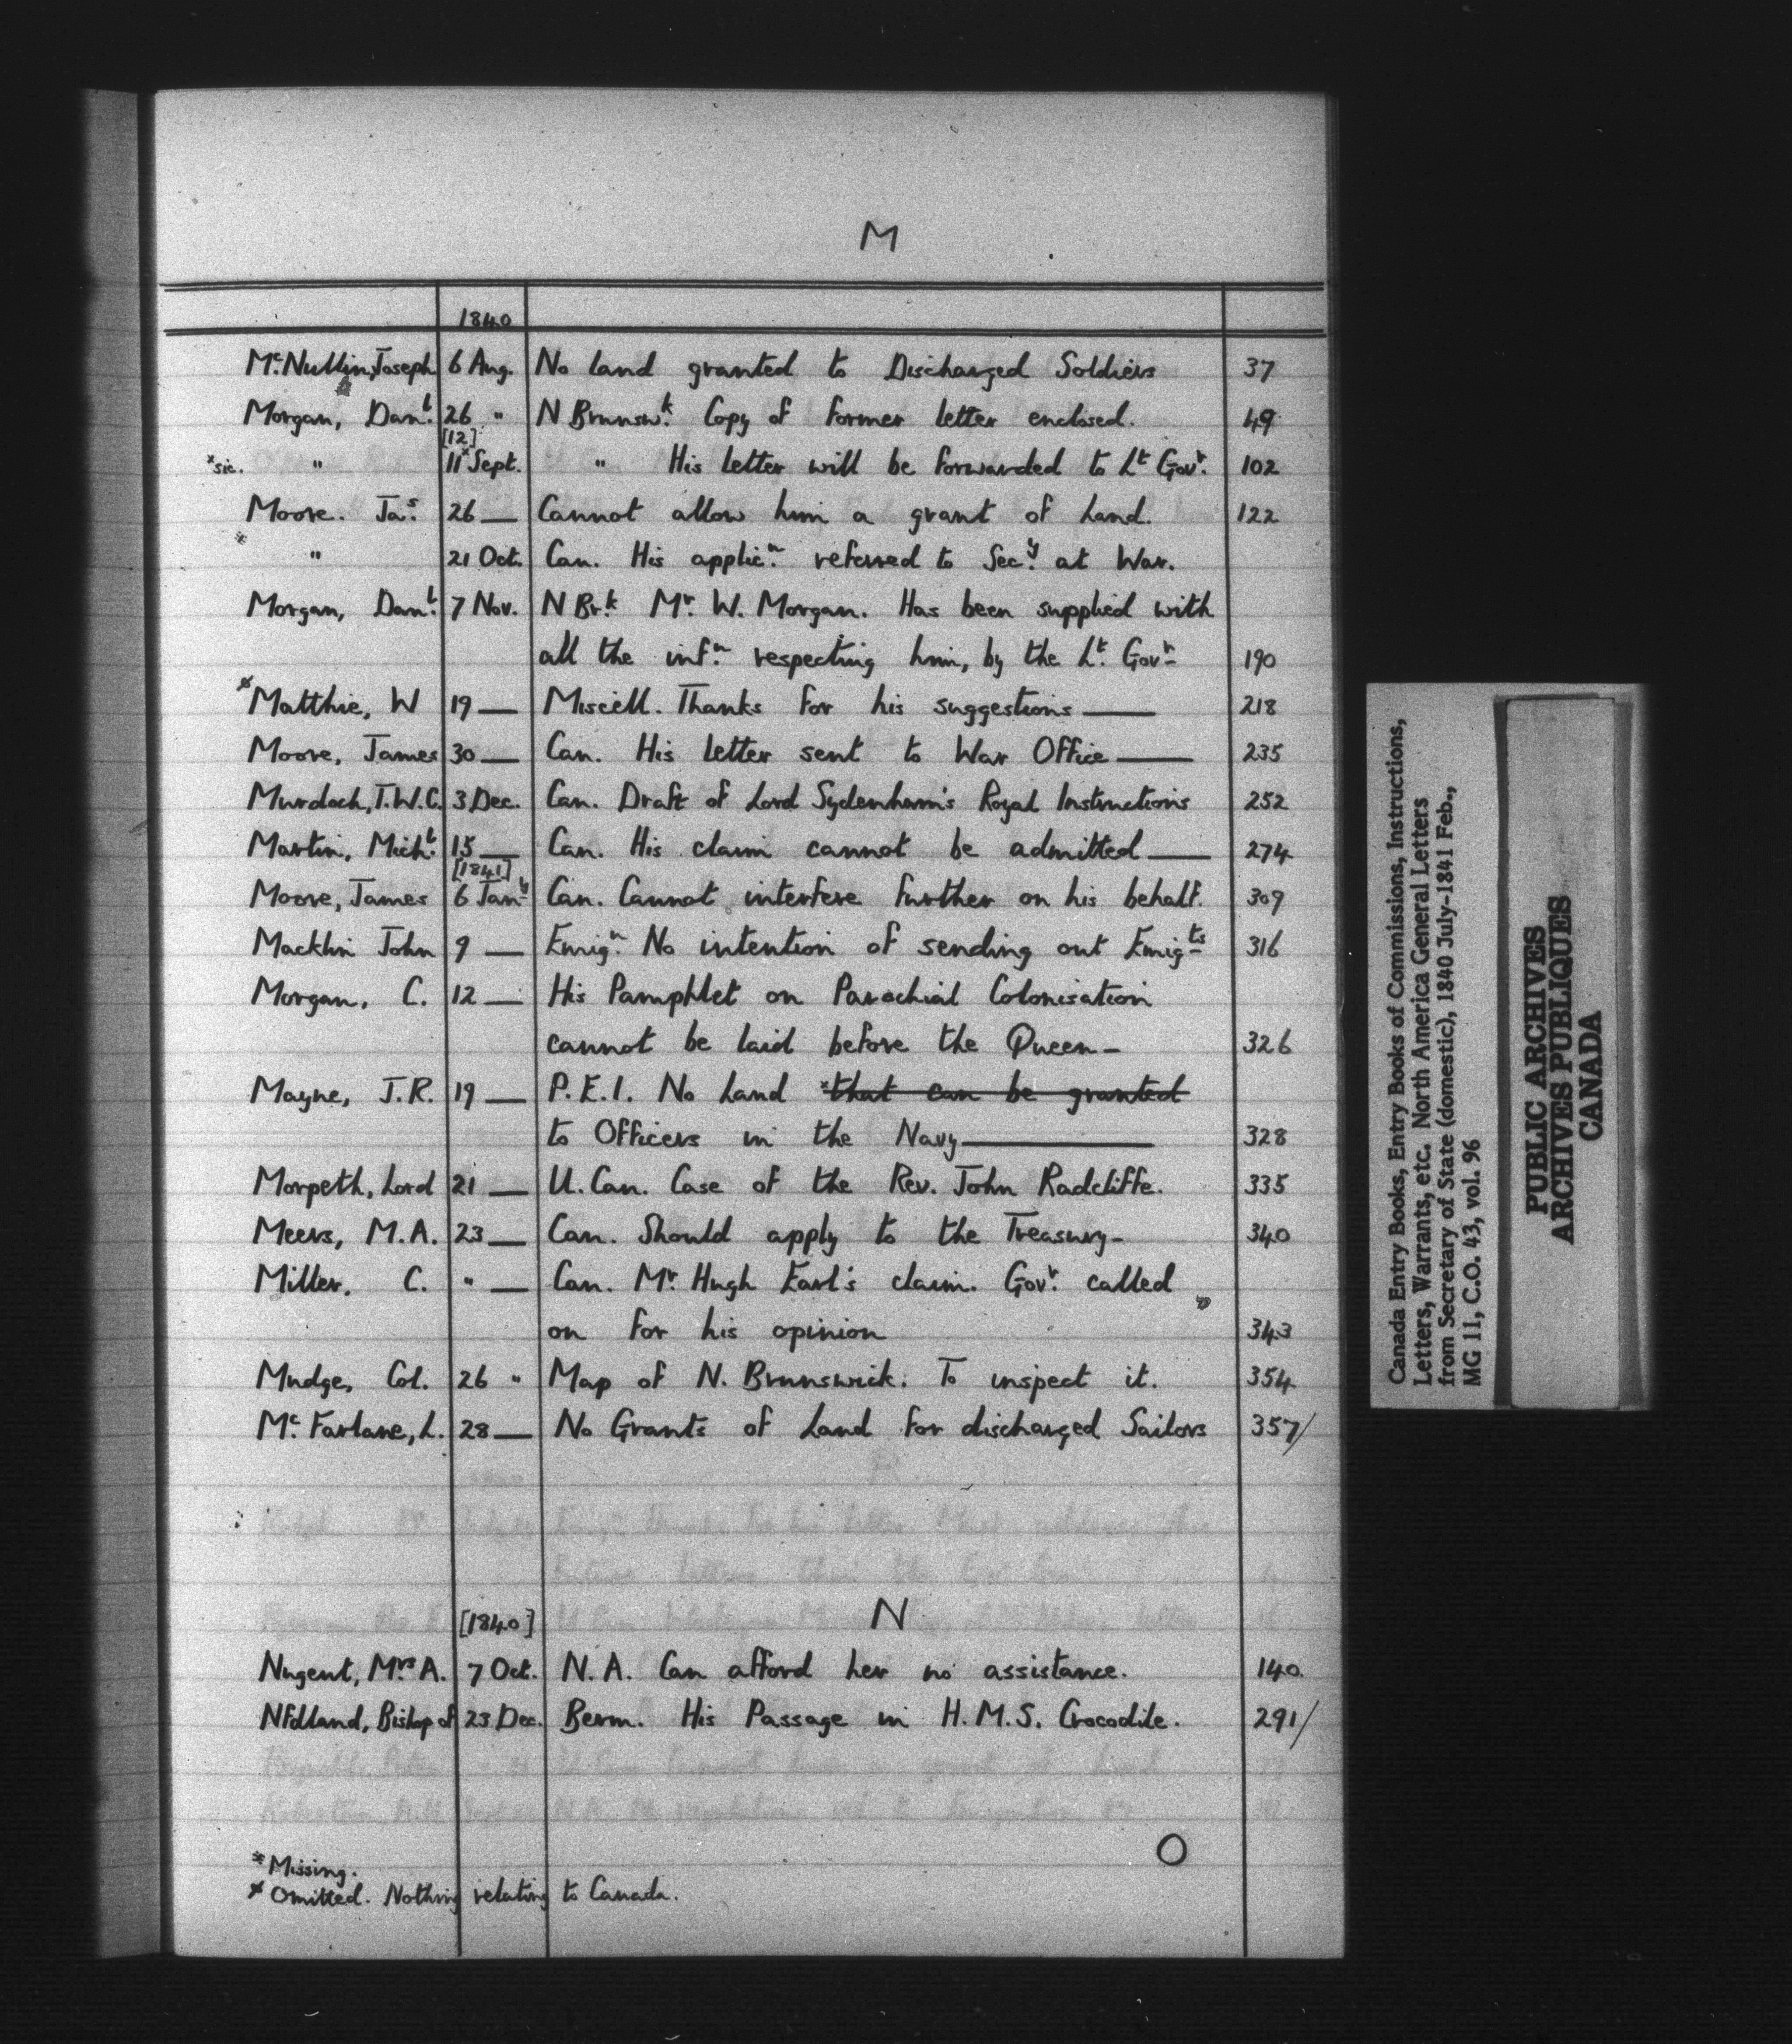 M
1840
Mc. Nullin, Joseph 6 Aug. No land granted to Discharged Soldiers 37
Morgan, Danl. 26 " N Brunswk. Copy of former letter enclosed. 49
[12]
*sic. " 11* Sept. " His letter will be forwarded to Lt Govr. 102
Moore. Jas. 26 — Cannot allow him a grant of Land. 122
* " 21 Oct. Can. His applicn. referred to Secy. at War.
Morgan, Danl. 7 Nov. N Brk. Mr. W. Morgan. Has been supplied with
all the infn. respecting him, by the Lt. Govr- 190
ø Matthie, W 19 — Miscell. Thanks for his suggestions — 218
Moore, James 30 — Can. His letter sent to War Office — 235
Murdoch, T.W.C. 3 Dec. Can. Draft of Lord Sydenham's Royal Instructions 252
Martin, Michl. 15 — Can. His claim cannot be admitted — 274
[1841]
Moore, James 6 Jany Can. Cannot interfere further on his behalf. 309
Macklin John 9 — Emign. No intention of sending out Emigts 316
Morgan, C. 12 — His Pamphlet on Parochial Colonisation
cannot be laid before the Queen- 326
Mayne, J.R. 19 — P.E.I. No Land *that can be granted
to Officers in the Navy — 328
Morpeth, Lord 21 — U. Can. Case of the Rev. John Radcliffe. 335
Meers, M.A. 23 — Can. Should apply to the Treasury- 340
Miller, C. " — Can. Mr. Hugh Earl's claim. Govr. called
on for his opinion 343
Mudge, Col. 26 " Map of N. Brunswick. To inspect it. 354
Mc. Farlane, L. 28 — No Grants of Land for discharged Sailors 357/
[1840] N
Nugent, Mrs A. 7 Oct. N.A. Can afford her no assistance. 140
Nfdland, Bishop of 23 Dec. Berm. His Passage in H.M.S. Crocodile. 291/
O
* Missing.
ø Omitted. Nothing relating to Canada.
Canada Entry Books, Entry Books of Commissions, Instructions,
Letters, Warrants, etc. North America General Letters
from Secretary of State (domestic), 1840 July-1841 Feb.,
MG 11, C.O. 43, vol. 96
PUBLIC ARCHIVES
ARCHIVES PUBLIQUES
CANADA